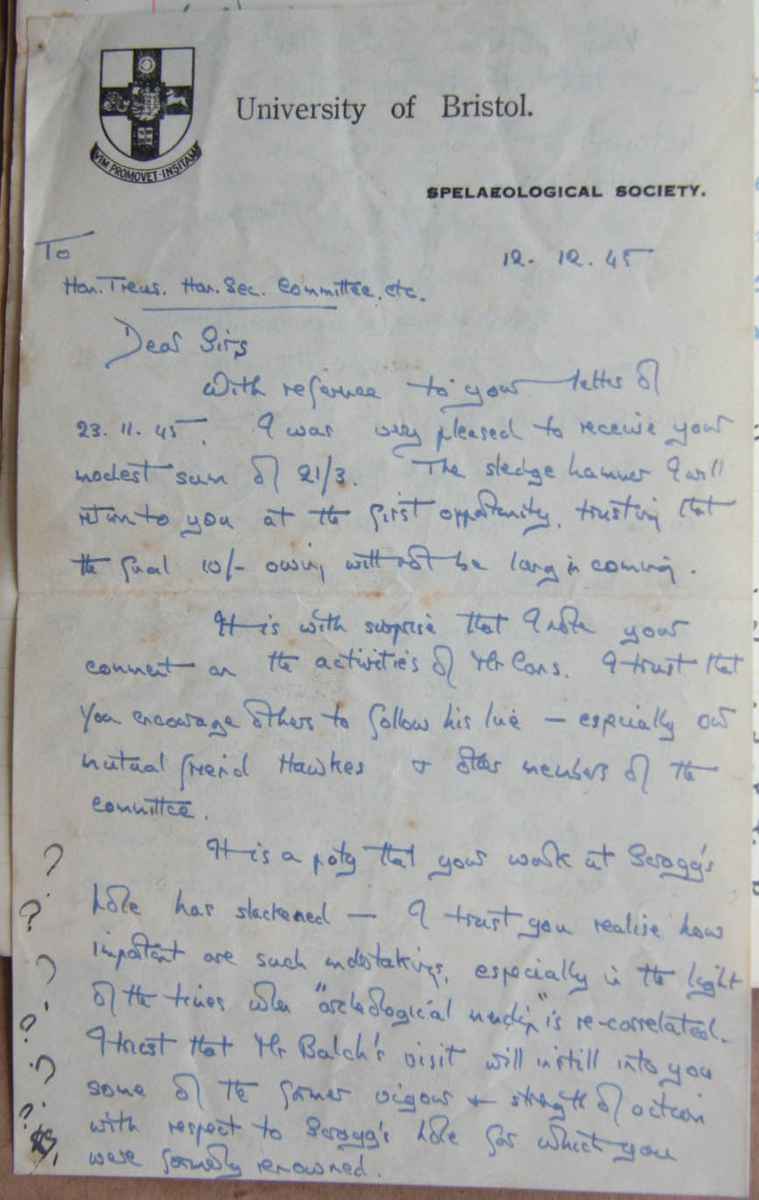 VIM PROMOVET INSITAM
University of Bristol.
SPELAEOLOGICAL SOCIETY.
To
12. 12. 45
Hon. Treas. Hon. Sec. Committee, etc.
Dear Sirs
With refernee to your letter of
23. 11. 45. I was very pleased to receive your
modest sum of 21/3. The sledge hammer I will
return to you at the first opportunity, trusting that
the final 10/- owing will not be long in coming.
It is with surprise that I note your
comment on the activities of Mr Cons. I trust that
you encourage others to follow his line — especially our
mutual friend Hawkes & other members of the
committee.
It is a pity that your work at Scragg's
hole has slackened — I trust you realise how
important are such undertakings, especially in the light
of the times when "archeological mendip" is re-correlated.
I trust that Mr Balch's visit will instill into you
some of the former vigour & strength of action
with respect to Scragg's hole for which you
were formerly renowned.
?
?
?
?
?
?